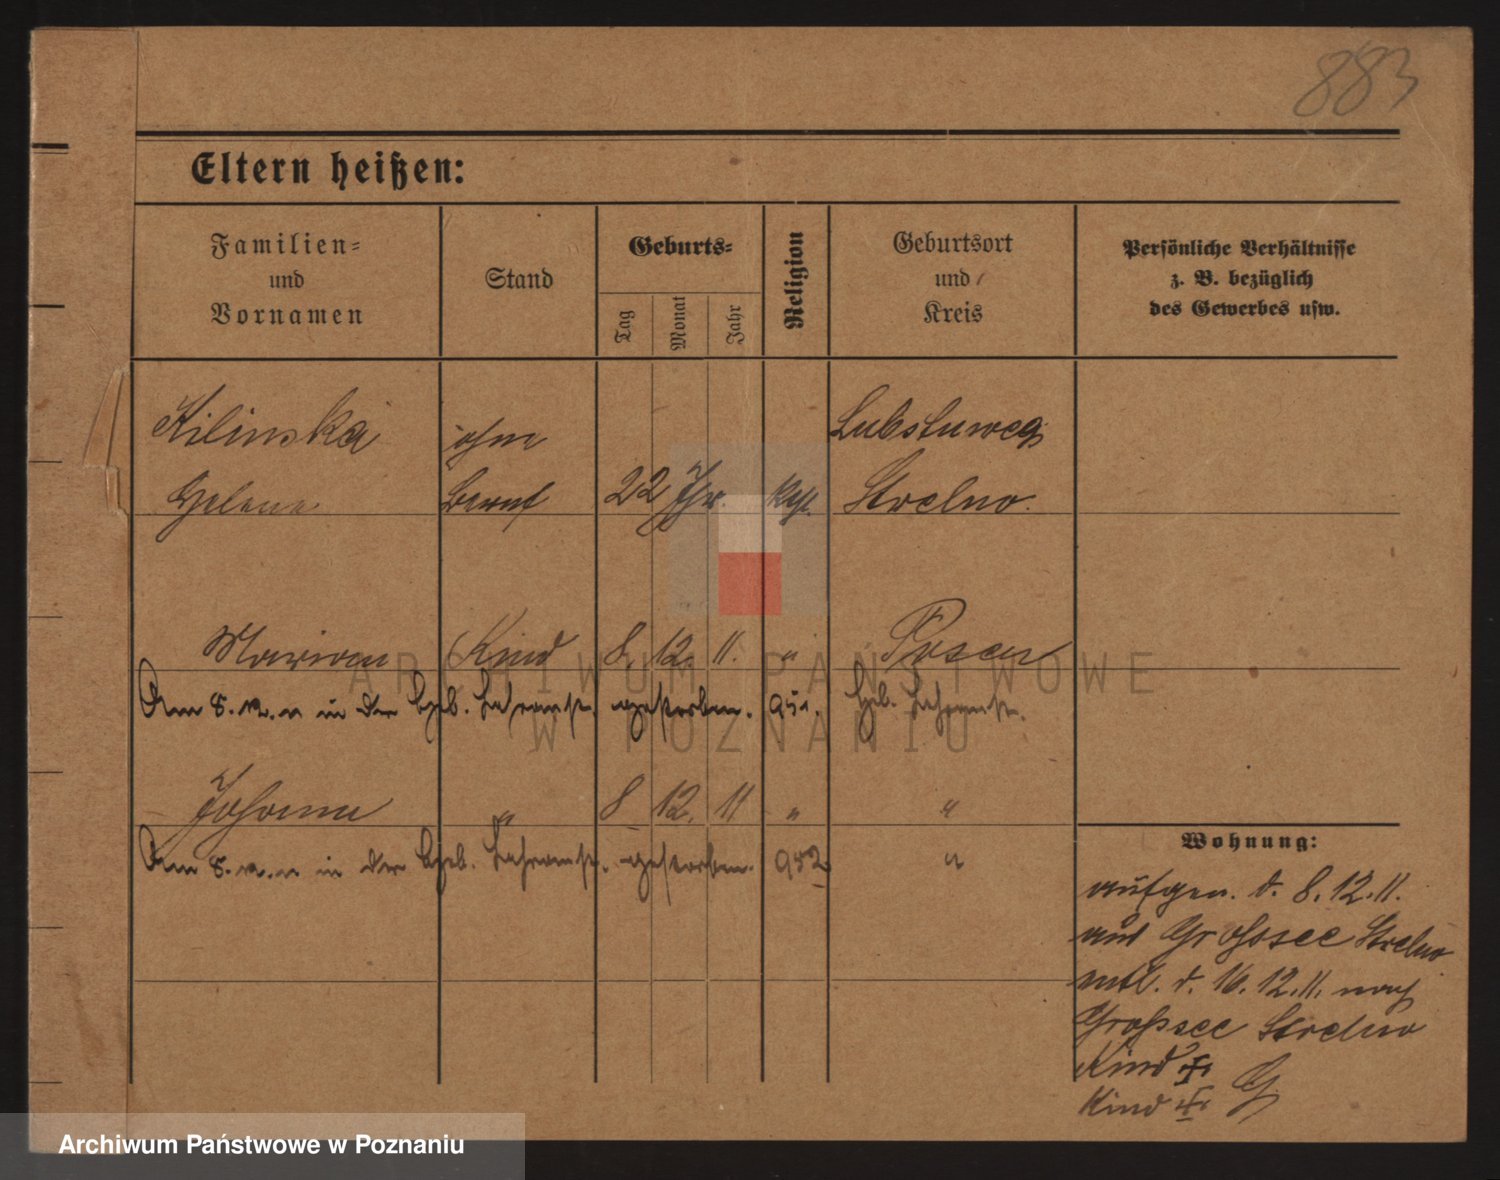 883
Eltern heißen:
Familien-
und
Vornamen
Stand
Geburts-
Tag
Monat
Jahr
Religion
Geburtsort
und
Kreis
Persönliche Verhältnisse
z. B. bezüglich
des Gewerbes usw.
Kilinska ohne
Helene Beruf 22 Jhr. kath. Strelno.
Marian Kind 8. 12. 11. " Posen
Am 8.12.11 in der Geb. Lehranst. gestorben. 951. Geb. Lehranst.
Johann " 8 12. 11 " "
Am 8.12.11 in der Geb. Lehranst. gestorben. 952 "
Wohnung:
aufgen. d. 8.12.11.
aus Grossee Strelno
entl. d. 16.12.11. nach
Großsee Strelno
Kind †
Kind †
ARCHIWUM PAŃSTWOWE
W POZNANIU
Archiwum Państwowe w Poznaniu